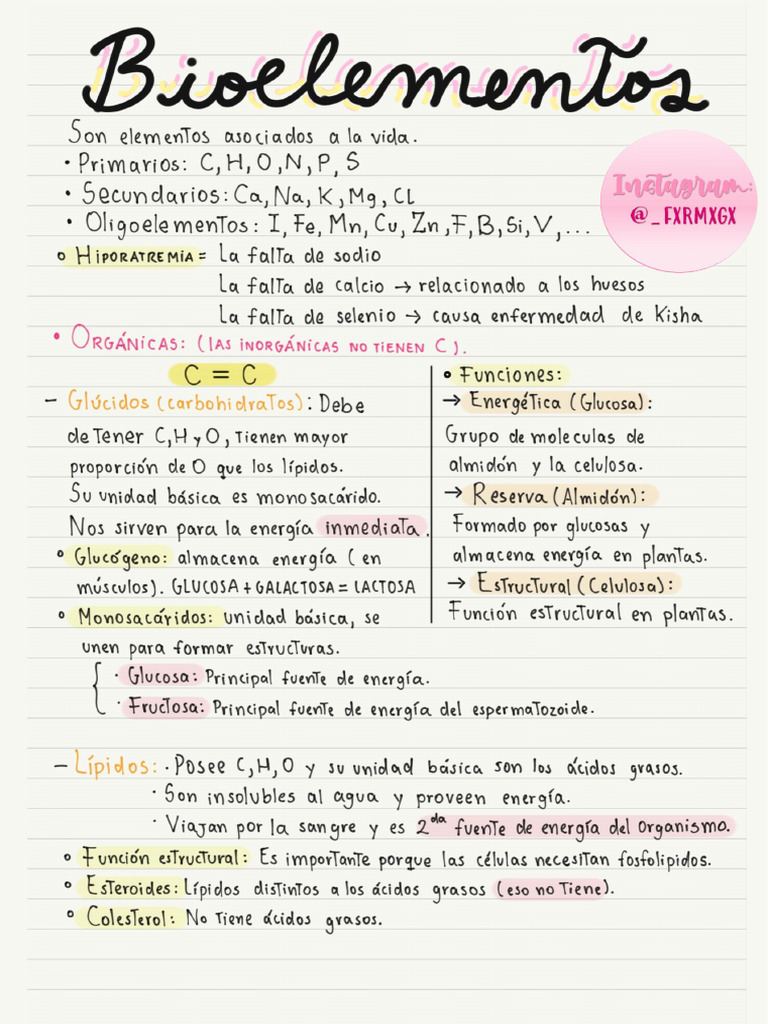 Bioelementos
Son elementos asociados a la vida.
• Primarios: C, H, O, N, P, S
• Secundarios: Ca, Na, K, Mg, CL
• Oligoelementos: I, Fe, Mn, Cu, Zn, F, B, Si, V, ...
Instagram:
@_FXRMXGX
° HIPORATREMIA = La falta de sodio
La falta de calcio → relacionado a los huesos
La falta de selenio → causa enfermedad de Kisha
• ORGÁNICAS: (LAS INORGÁNICAS NO TIENEN C).
C = C
– Glúcidos (carbohidratos): Debe
de tener C, H y O, tienen mayor
proporción de O que los lípidos.
Su unidad básica es monosacárido.
Nos sirven para la energía inmediata.
° Glucógeno: almacena energía (en
músculos). GLUCOSA + GALACTOSA = LACTOSA
° Monosacáridos: unidad básica, se
unen para formar estructuras.
· Glucosa: Principal fuente de energía.
· Fructosa: Principal fuente de energía del espermatozoide.
° Funciones:
→ Energética (Glucosa):
Grupo de moleculas de
almidón y la celulosa.
→ Reserva (Almidón):
Formado por glucosas y
almacena energía en plantas.
→ Estructural (Celulosa):
Función estructural en plantas.
– Lípidos: · Posee C, H, O y su unidad básica son los ácidos grasos.
· Son insolubles al agua y proveen energía.
· Viajan por la sangre y es 2da fuente de energía del organismo.
° Función estructural: Es importante porque las células necesitan fosfolipidos.
° Esteroides: Lípidos distintos a los ácidos grasos (eso no tiene).
° Colesterol: No tiene ácidos grasos.